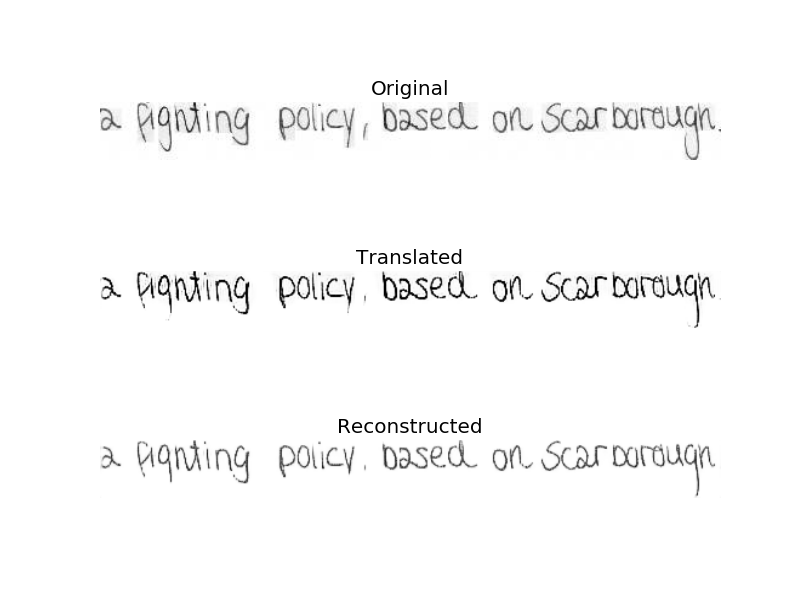 Original
a fighting policy, based on Scarborough.
Translated
a fighting policy, based on Scarborough.
Reconstructed
a fighting policy, based on Scarborough